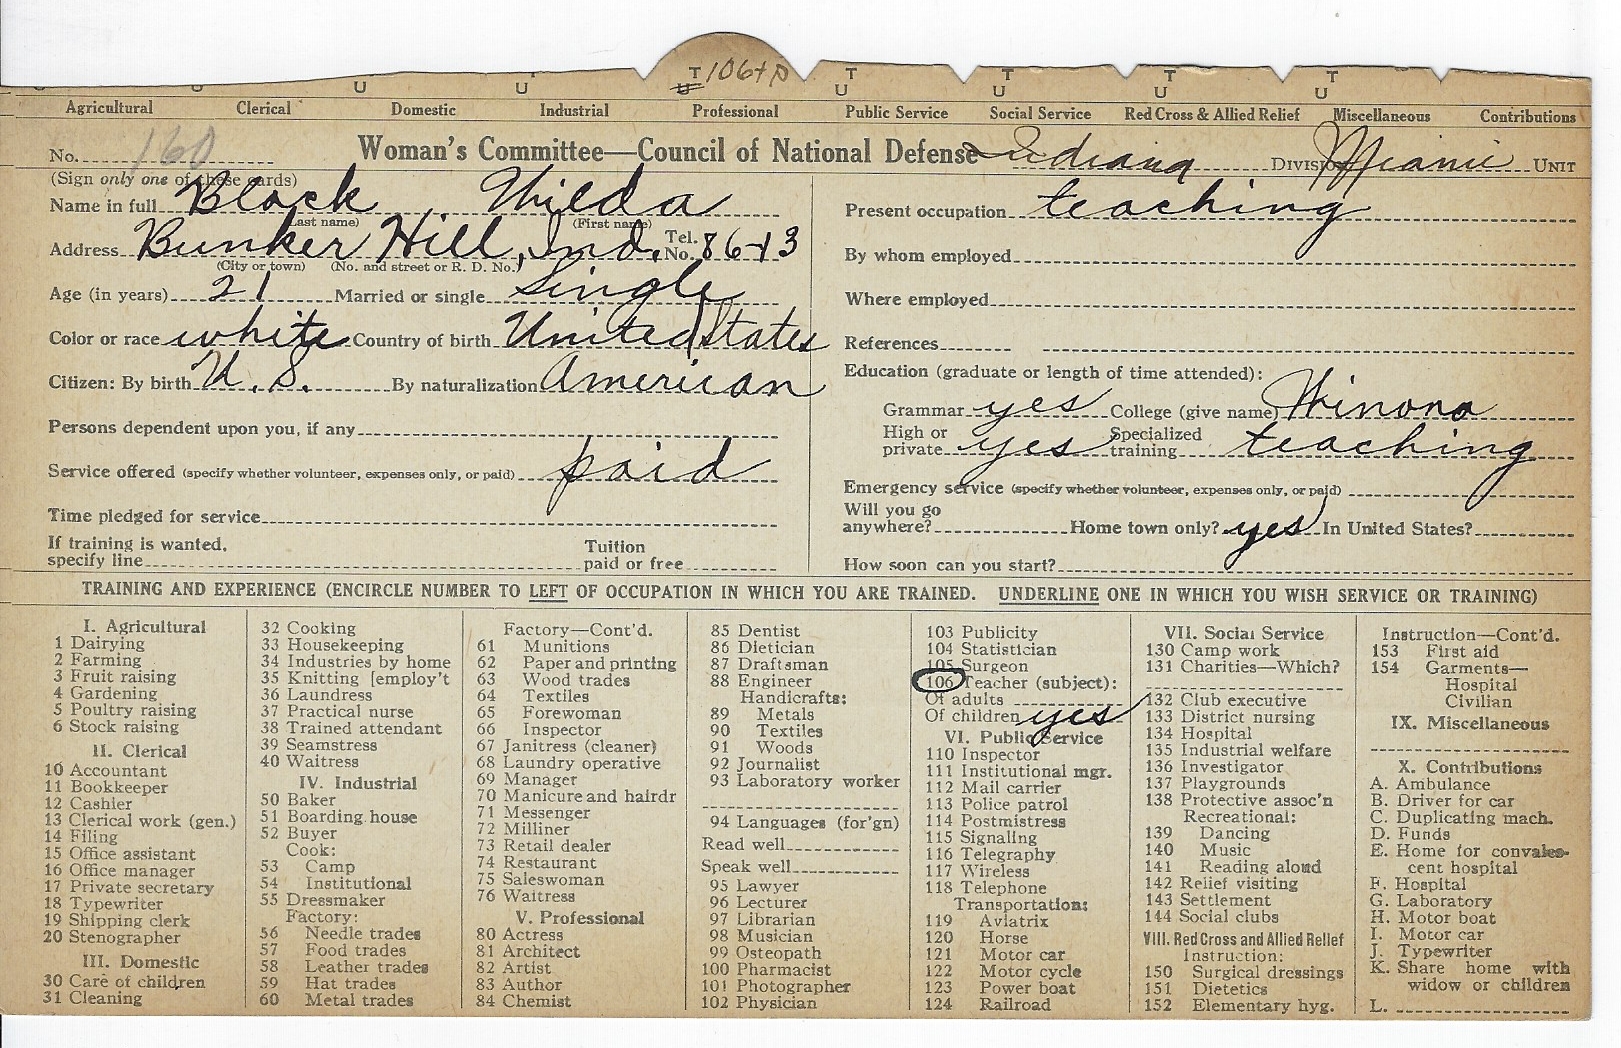 T 106+P T T T T
U U U U U U U U
Agricultural Clerical Domestic Industrial Professional Public Service Social Service Red Cross & Allied Relief Miscellaneous Contributions
No. 160 Woman's Committee—Council of National Defense Indiana Division Miami Unit
(Sign only one of these cards)
Name in full Black Wilda
(Last name) (First name)
Address Bunker Hill, Ind. Tel. No. 86-13
(City or town) (No. and street or R. D. No.)
Age (in years) 21 Married or single Single
Color or race white Country of birth United States
Citizen: By birth U. S. By naturalization American
Persons dependent upon you, if any
Service offered (specify whether volunteer, expenses only, or paid) paid
Time pledged for service
If training is wanted, specify line Tuition paid or free
Present occupation teaching
By whom employed
Where employed
References
Education (graduate or length of time attended):
Grammar yes College (give name) Winona
High or private yes Specialized training teaching
Emergency service (specify whether volunteer, expenses only, or paid)
Will you go anywhere? Home town only? yes In United States?
How soon can you start?
TRAINING AND EXPERIENCE (ENCIRCLE NUMBER TO LEFT OF OCCUPATION IN WHICH YOU ARE TRAINED. UNDERLINE ONE IN WHICH YOU WISH SERVICE OR TRAINING)
I. Agricultural
1 Dairying
2 Farming
3 Fruit raising
4 Gardening
5 Poultry raising
6 Stock raising
II. Clerical
10 Accountant
11 Bookkeeper
12 Cashier
13 Clerical work (gen.)
14 Filing
15 Office assistant
16 Office manager
17 Private secretary
18 Typewriter
19 Shipping clerk
20 Stenographer
III. Domestic
30 Care of children
31 Cleaning
32 Cooking
33 Housekeeping
34 Industries by home
35 Knitting [employ't
36 Laundress
37 Practical nurse
38 Trained attendant
39 Seamstress
40 Waitress
IV. Industrial
50 Baker
51 Boarding house
52 Buyer
Cook:
53 Camp
54 Institutional
55 Dressmaker
Factory:
56 Needle trades
57 Food trades
58 Leather trades
59 Hat trades
60 Metal trades
Factory—Cont'd.
61 Munitions
62 Paper and printing
63 Wood trades
64 Textiles
65 Forewoman
66 Inspector
67 Janitress (cleaner)
68 Laundry operative
69 Manager
70 Manicure and hairdr
71 Messenger
72 Milliner
73 Retail dealer
74 Restaurant
75 Saleswoman
76 Waitress
V. Professional
80 Actress
81 Architect
82 Artist
83 Author
84 Chemist
85 Dentist
86 Dietician
87 Draftsman
88 Engineer
Handicrafts:
89 Metals
90 Textiles
91 Woods
92 Journalist
93 Laboratory worker
94 Languages (for'gn)
Read well
Speak well
95 Lawyer
96 Lecturer
97 Librarian
98 Musician
99 Osteopath
100 Pharmacist
101 Photographer
102 Physician
103 Publicity
104 Statistician
105 Surgeon
106 Teacher (subject):
Of adults
Of children yes
VI. Public Service
110 Inspector
111 Institutional mgr.
112 Mail carrier
113 Police patrol
114 Postmistress
115 Signaling
116 Telegraphy
117 Wireless
118 Telephone
Transportation:
119 Aviatrix
120 Horse
121 Motor car
122 Motor cycle
123 Power boat
124 Railroad
VII. Social Service
130 Camp work
131 Charities—Which?
132 Club executive
133 District nursing
134 Hospital
135 Industrial welfare
136 Investigator
137 Playgrounds
138 Protective assoc'n
Recreational:
139 Dancing
140 Music
141 Reading aloud
142 Relief visiting
143 Settlement
144 Social clubs
VIII. Red Cross and Allied Relief
Instruction:
150 Surgical dressings
151 Dietetics
152 Elementary hyg.
Instruction—Cont'd.
153 First aid
154 Garments—
Hospital
Civilian
IX. Miscellaneous
X. Contributions
A. Ambulance
B. Driver for car
C. Duplicating mach.
D. Funds
E. Home for convales-
cent hospital
F. Hospital
G. Laboratory
H. Motor boat
I. Motor car
J. Typewriter
K. Share home with
widow or children
L.